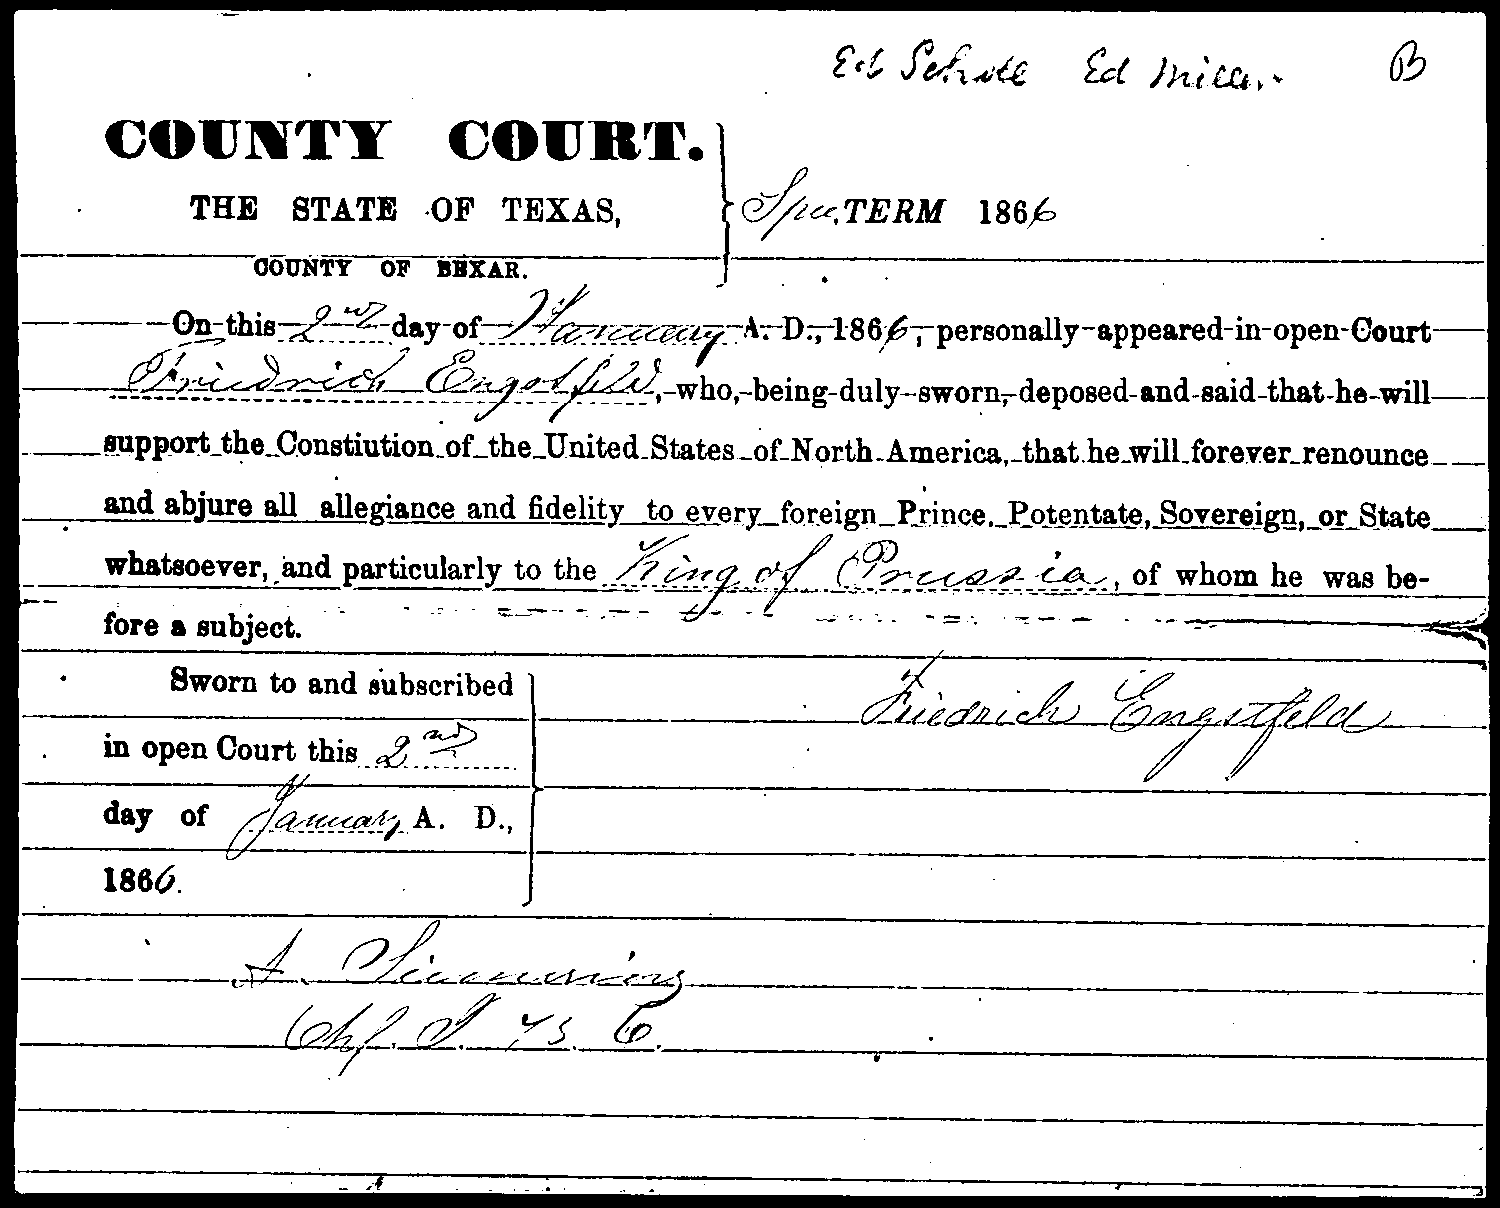 Ed Scholl Ed Miller. B
COUNTY COURT.
THE STATE OF TEXAS,
Spec. TERM 1866
COUNTY OF BEXAR.
On this 2nd day of January A. D., 1866, personally appeared in open Court
Friedrich Engstfeld, who, being duly sworn, deposed and said that he will
support the Constiution of the United States of North America, that he will forever renounce
and abjure all allegiance and fidelity to every foreign Prince, Potentate, Sovereign, or State
whatsoever, and particularly to the King of Prussia, of whom he was be-
fore a subject.
Sworn to and subscribed
Friedrich Engstfeld
in open Court this 2nd
day of January A. D.,
1866.
A. Siemering
Chf. J. B. C.